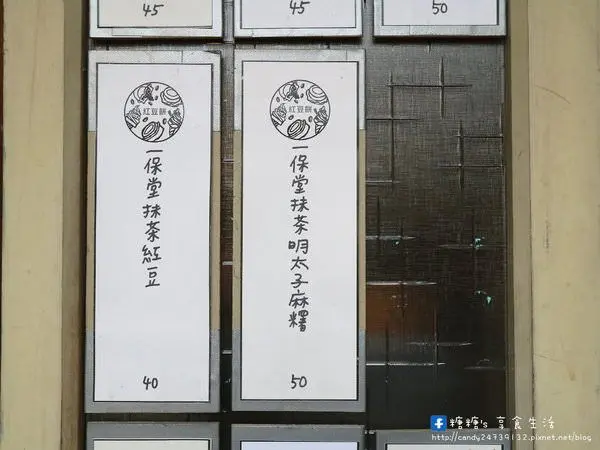 45
45
50
紅豆餅
一保堂抹茶紅豆
40
紅豆餅
一保堂抹茶明太子麻糬
50
糖糖's 享食生活
http://candy24739132.pixnet.net/blog